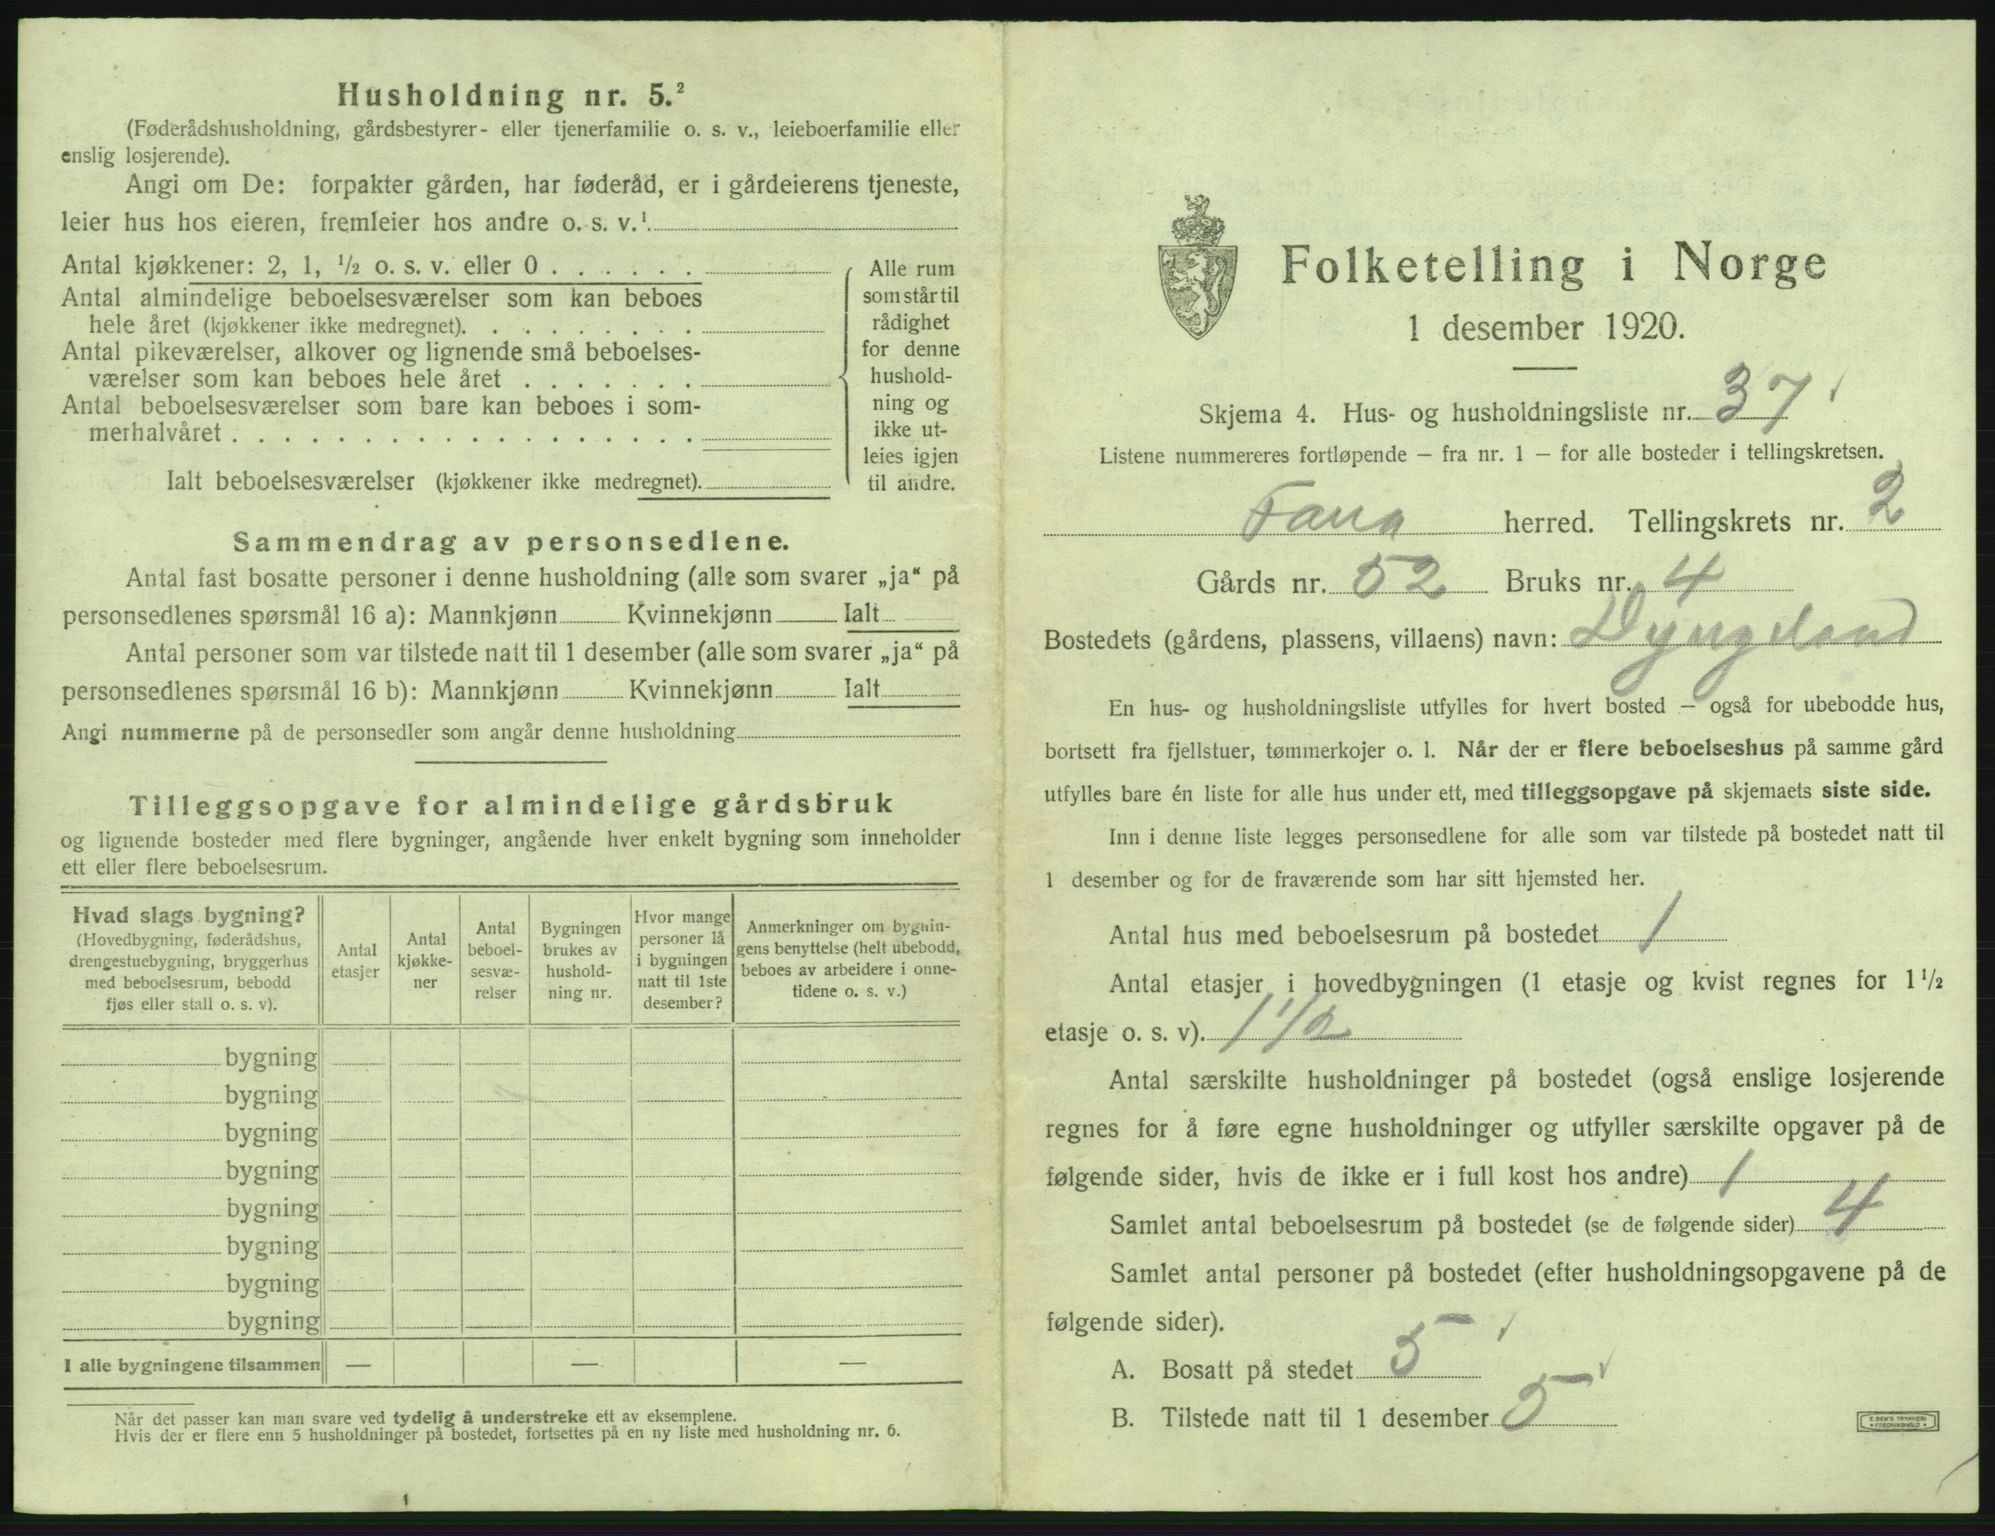 Husholdning nr. 5.²
(Føderådshusholdning, gårdsbestyrer- eller tjenerfamilie o. s. v., leieboerfamilie eller
enslig losjerende).
Angi om De: forpakter gården, har føderåd, er i gårdeierens tjeneste,
leier hus hos eieren, fremleier hos andre o. s. v.¹
Antal kjøkkener: 2, 1, ½ o. s. v. eller 0 . . . . . .
Antal almindelige beboelsesværelser som kan beboes
hele året (kjøkkener ikke medregnet). . . . . . . . .
Antal pikeværelser, alkover og lignende små beboelses-
værelser som kan beboes hele året . . . . . . .
Antal beboelsesværelser som bare kan beboes i som-
merhalvåret . . . . . . . . . . . . . . . . . .
Ialt beboelsesværelser (kjøkkener ikke medregnet).
Alle rum
som står til
rådighet
for denne
hushold-
ning og
ikke ut-
leies igjen
til andre.
Sammendrag av personsedlene.
Antal fast bosatte personer i denne husholdning (alle som svarer „ja“ på
personsedlenes spørsmål 16 a): Mannkjønn Kvinnekjønn Ialt
Antal personer som var tilstede natt til 1 desember (alle som svarer „ja“ på
personsedlenes spørsmål 16 b): Mannkjønn Kvinnekjønn Ialt
Angi nummerne på de personsedler som angår denne husholdning
Tilleggsopgave for almindelige gårdsbruk
og lignende bosteder med flere bygninger, angående hver enkelt bygning som inneholder
ett eller flere beboelsesrum.
Hvad slags bygning?
(Hovedbygning, føderådshus,
drengestuebygning, bryggerhus
med beboelsesrum, bebodd
fjøs eller stall o. s. v).
Antal
etasjer
Antal
kjøkke-
ner
Antal
beboel-
sesvæ-
relser
Bygningen
brukes av
hushold-
ning nr.
Hvor mange
personer lå
i bygningen
natt til 1ste
desember?
Anmerkninger om bygnin-
gens benyttelse (helt ubebodd,
beboes av arbeidere i onne-
tidene o. s. v.)
bygning
bygning
bygning
bygning
bygning
bygning
bygning
bygning
I alle bygningene tilsammen — — —
Når det passer kan man svare ved tydelig å understreke ett av eksemplene.
Hvis der er flere enn 5 husholdninger på bostedet, fortsettes på en ny liste med husholdning nr. 6.
Folketelling i Norge
1 desember 1920.
Skjema 4. Hus- og husholdningsliste nr. 37
Listene nummereres fortløpende — fra nr. 1 — for alle bosteder i tellingskretsen.
Fana herred. Tellingskrets nr. 2
Gårds nr. 52 Bruks nr. 4
Bostedets (gårdens, plassens, villaens) navn: Dyngeland
En hus- og husholdningsliste utfylles for hvert bosted — også for ubebodde hus,
bortsett fra fjellstuer, tømmerkojer o. l. Når der er flere beboelseshus på samme gård
utfylles bare én liste for alle hus under ett, med tilleggsopgave på skjemaets siste side.
Inn i denne liste legges personsedlene for alle som var tilstede på bostedet natt til
1 desember og for de fraværende som har sitt hjemsted her.
Antal hus med beboelsesrum på bostedet 1
Antal etasjer i hovedbygningen (1 etasje og kvist regnes for 1½
etasje o. s. v). 1 1/2
Antal særskilte husholdninger på bostedet (også enslige losjerende
regnes for å føre egne husholdninger og utfyller særskilte opgaver på de
følgende sider, hvis de ikke er i full kost hos andre) 1
Samlet antal beboelsesrum på bostedet (se de følgende sider) 4
Samlet antal personer på bostedet (efter husholdningsopgavene på de
følgende sider).
A. Bosatt på stedet 5
B. Tilstede natt til 1 desember 5
E. SEM'S TRYKKERI
FREDRIKSHALD